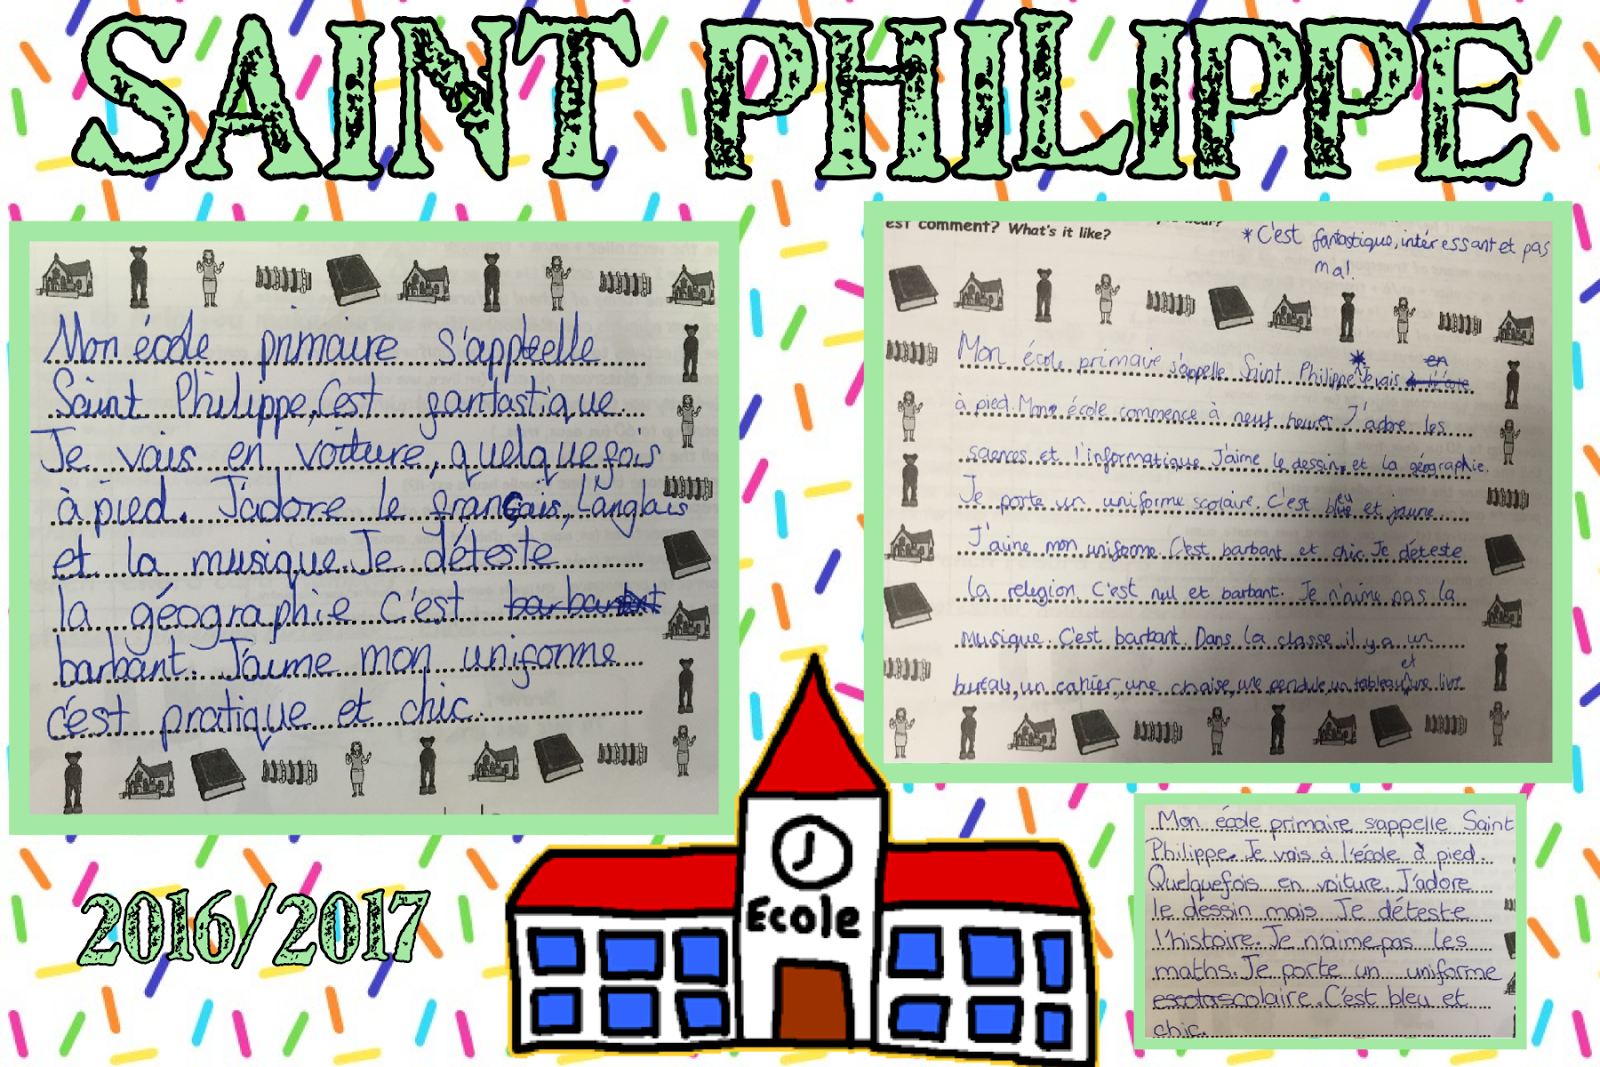 SAINT PHILIPPE
Mon école primaire s'appelle
Saint Philippe, C'est fantastique.
Je vais en voiture, quelquefois
à pied. J'adore le français, l'anglais
et la musique. Je déteste
la géographie C'est barbant
barbant. J'aime mon uniforme
c'est pratique et chic.
est comment? What's it like?
*C'est fantastique, intéressant et pas
mal.
Mon école primaire s'appelle Saint Philippe*Je vais en
à pied. Mon école commence à neuf heures J'adore les
sciences et l'informatique J'aime le dessin et la géographie.
Je porte un uniforme scolaire. C'est bleu et jaune.
J'aime mon uniforme. C'est barbant et chic. Je déteste
la religion. C'est nul et barbant. Je n'aime pas la
musique. C'est barbant. Dans la classe il y a un
et
bureau, un cahier, une chaise, une pendule, un tableau, une livre
Mon école primaire s'appelle Saint
Philippe. Je vais à l'école à pied.
Quelquefois en voiture. J'adore
le dessin mais Je déteste
l'histoire. Je n'aime pas les
maths. Je porte un uniforme
scolaire. C'est bleu et
chic.
Ecole
2016/2017